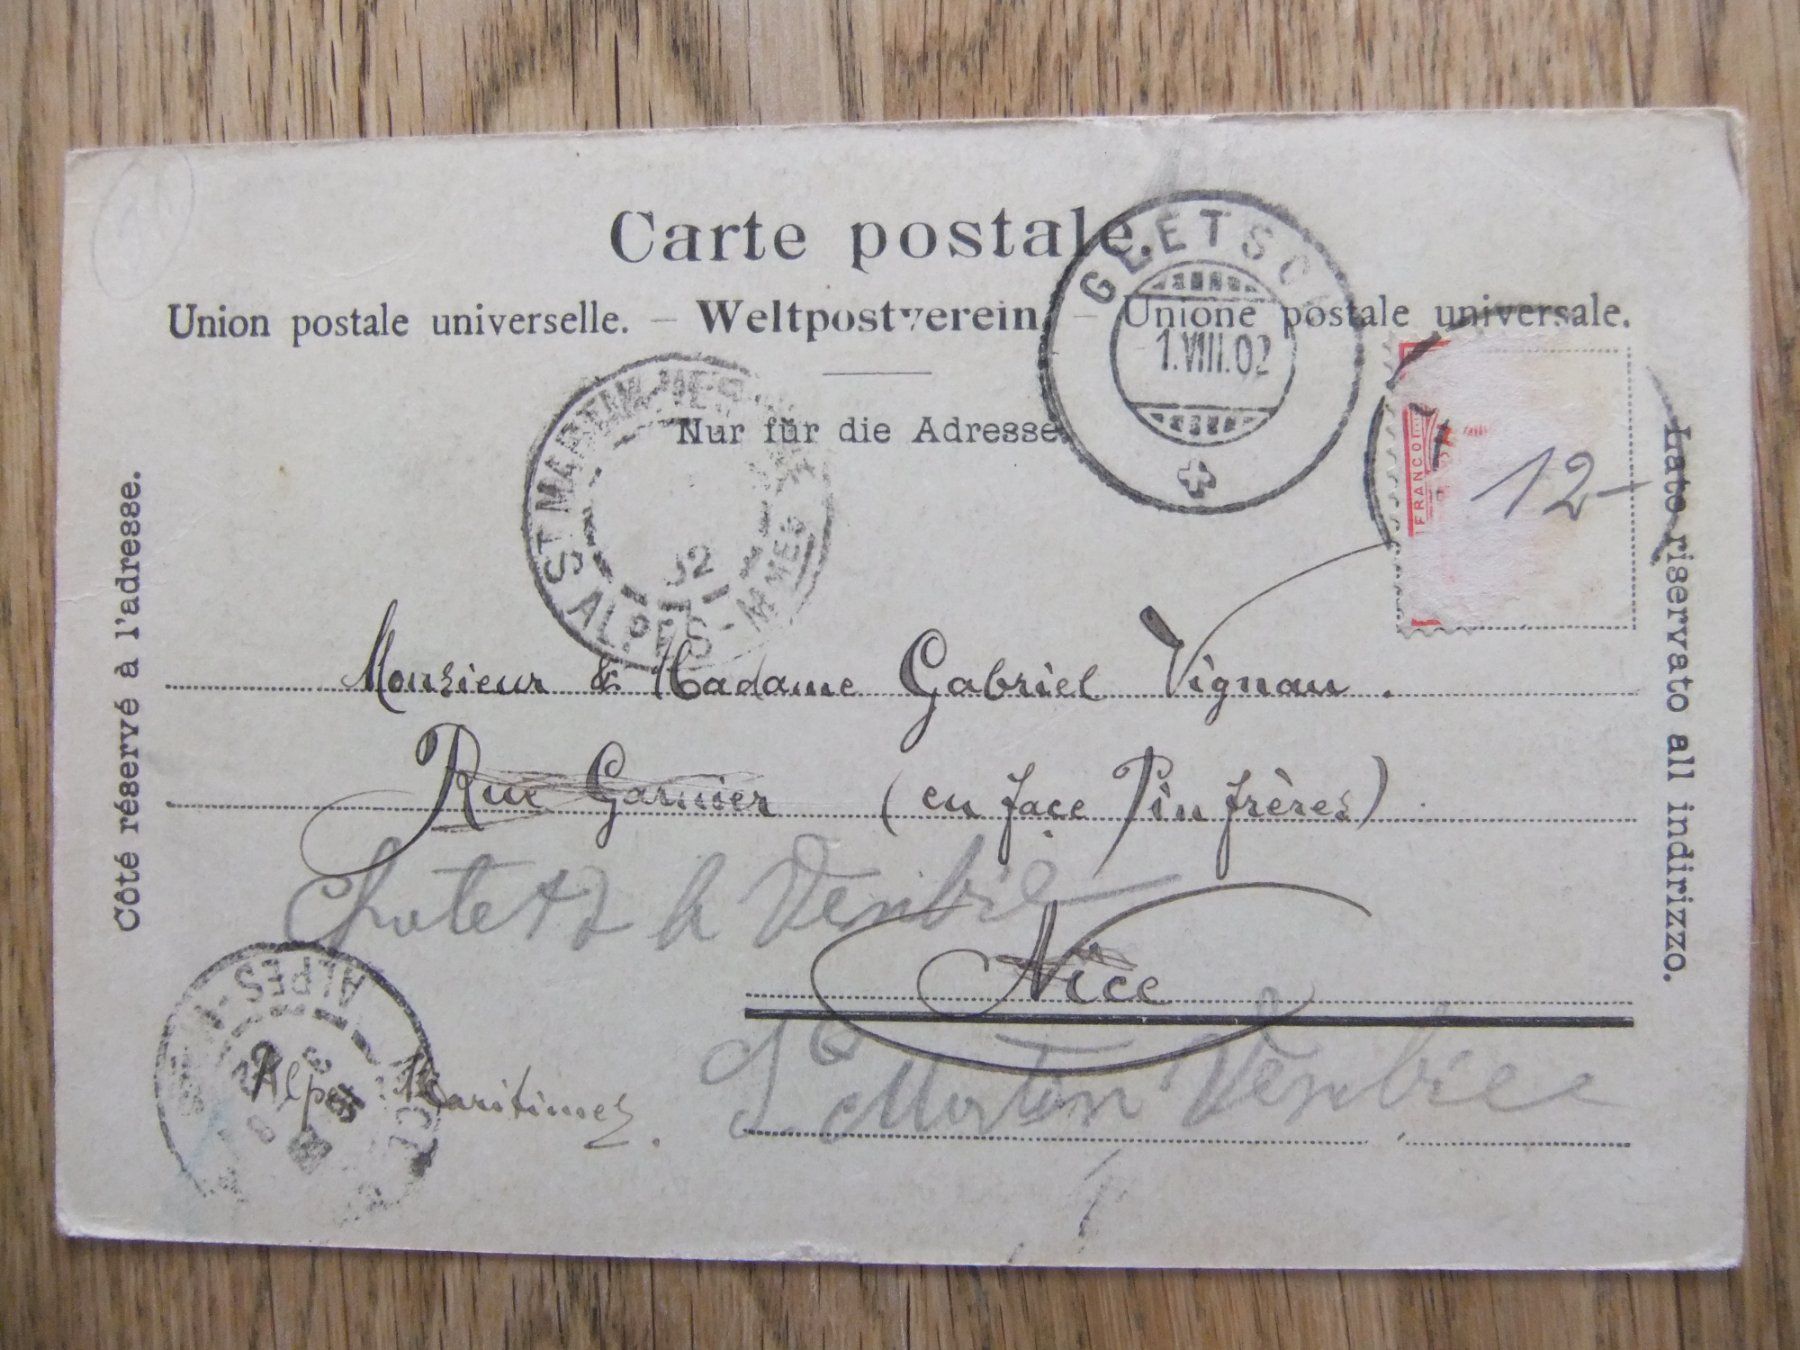 Carte postale.
GLETSC
Union postale universelle. — Weltpostverein. — Unione postale universale.
1.VIII.02
Nur für die Adresse.
ST MARTIN-VES
02
ALPES-MMES
FRANCO
12-
Côté réservé à l'adresse.
Lato riservato all indirizzo.
Monsieur & Madame Gabriel Vignau.
Rue Garnier (en face Pin frères).
Nice
Alpes Maritimes.
St Martin Vesubie
ALPES
NICE